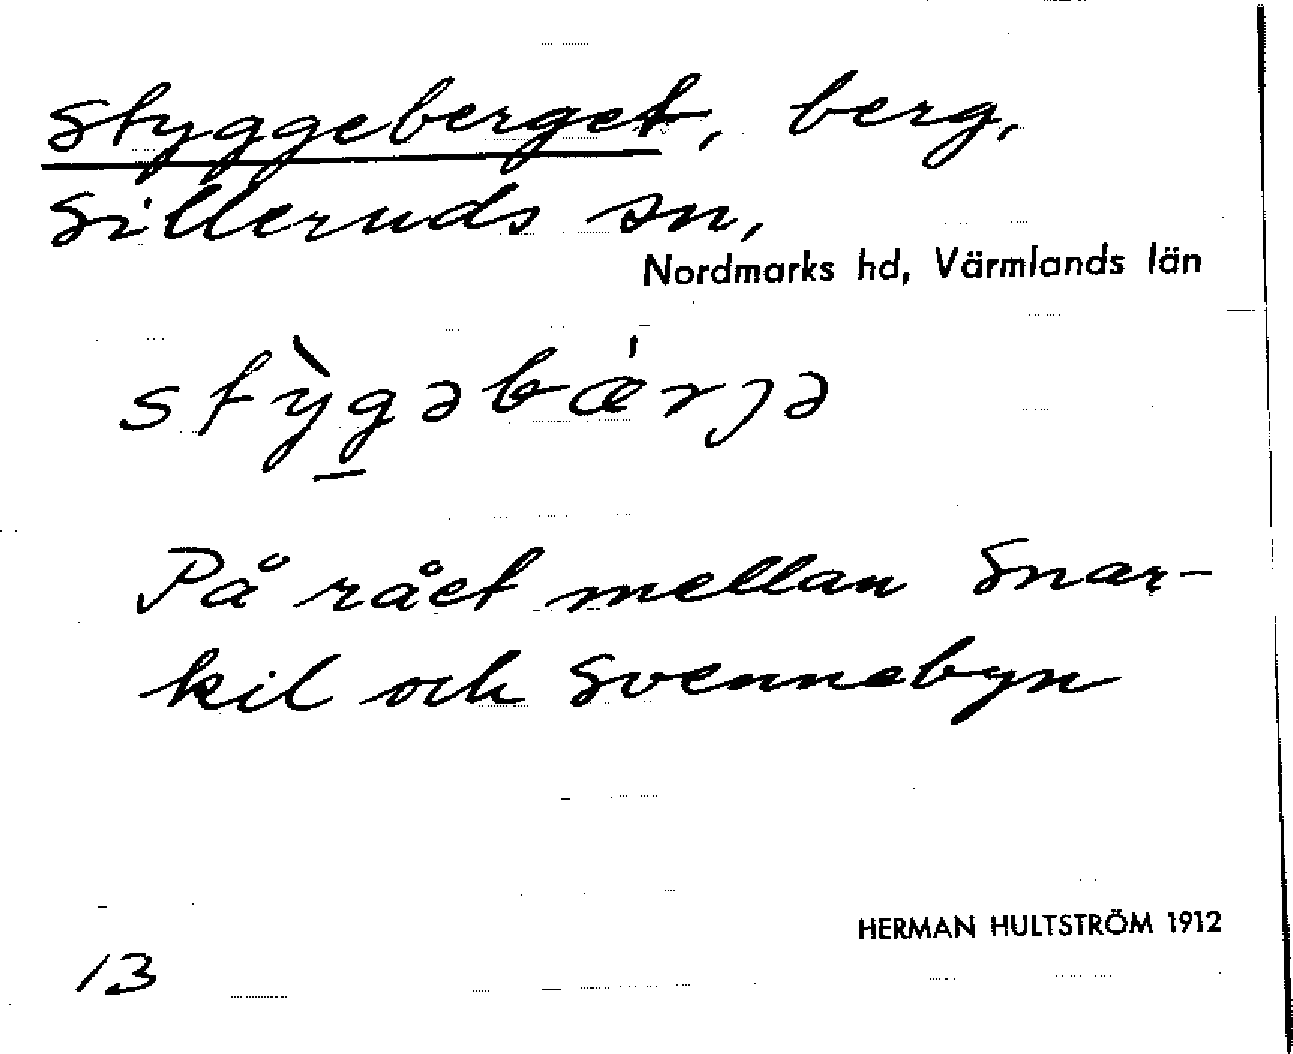 Styggeberget, berg,
Silleruds sn,
Nordmarks hd, Värmlands län
stỳg̱əbǽrjə
På rået mellan Snar-
kil och Svennebyn
HERMAN HULTSTRÖM 1912
13